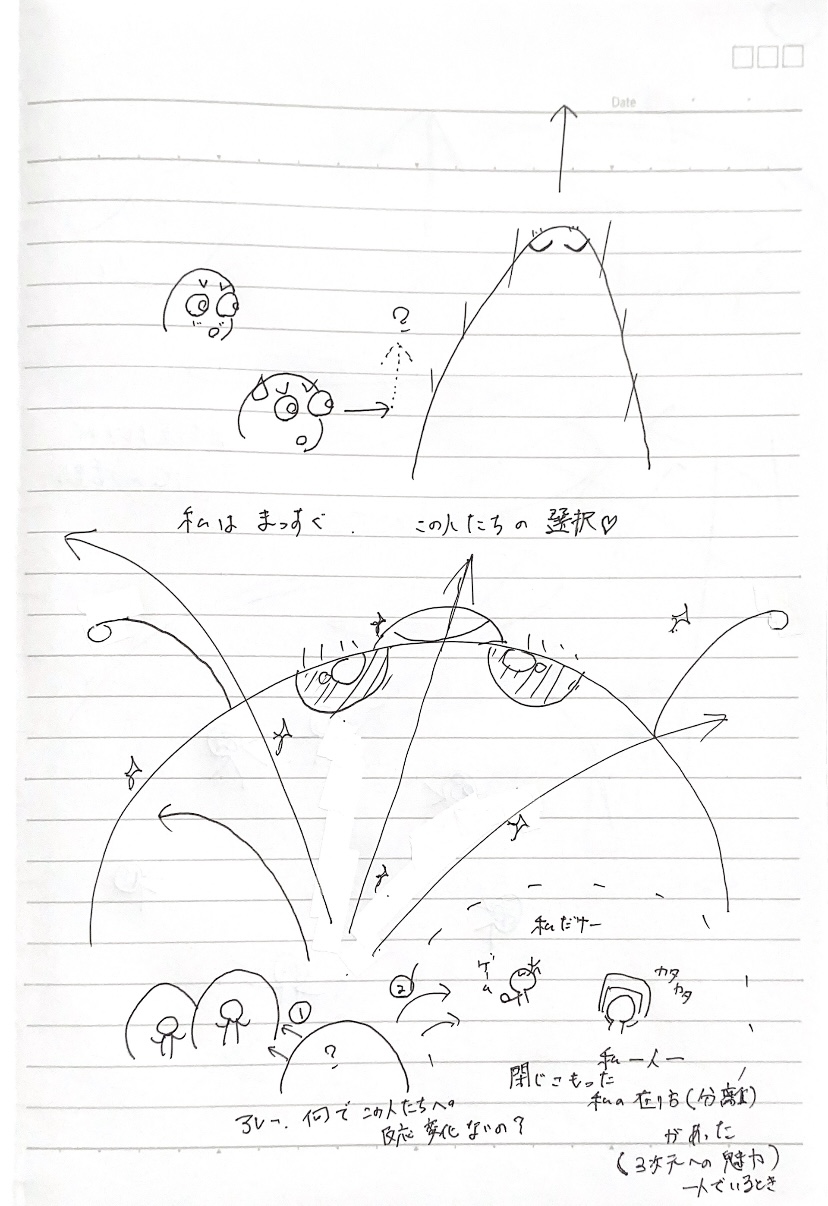 Date
?
私は まっすぐ . この人たちの 選択♡
私だけー
ゲーム
カタカタ
①
②
?
私 一人ー
閉じこもった
私の在り方(分離)
があった
(3次元への魅力)
一人でいるとき
アレー、何で この人たちへの
反応 変化ないの?